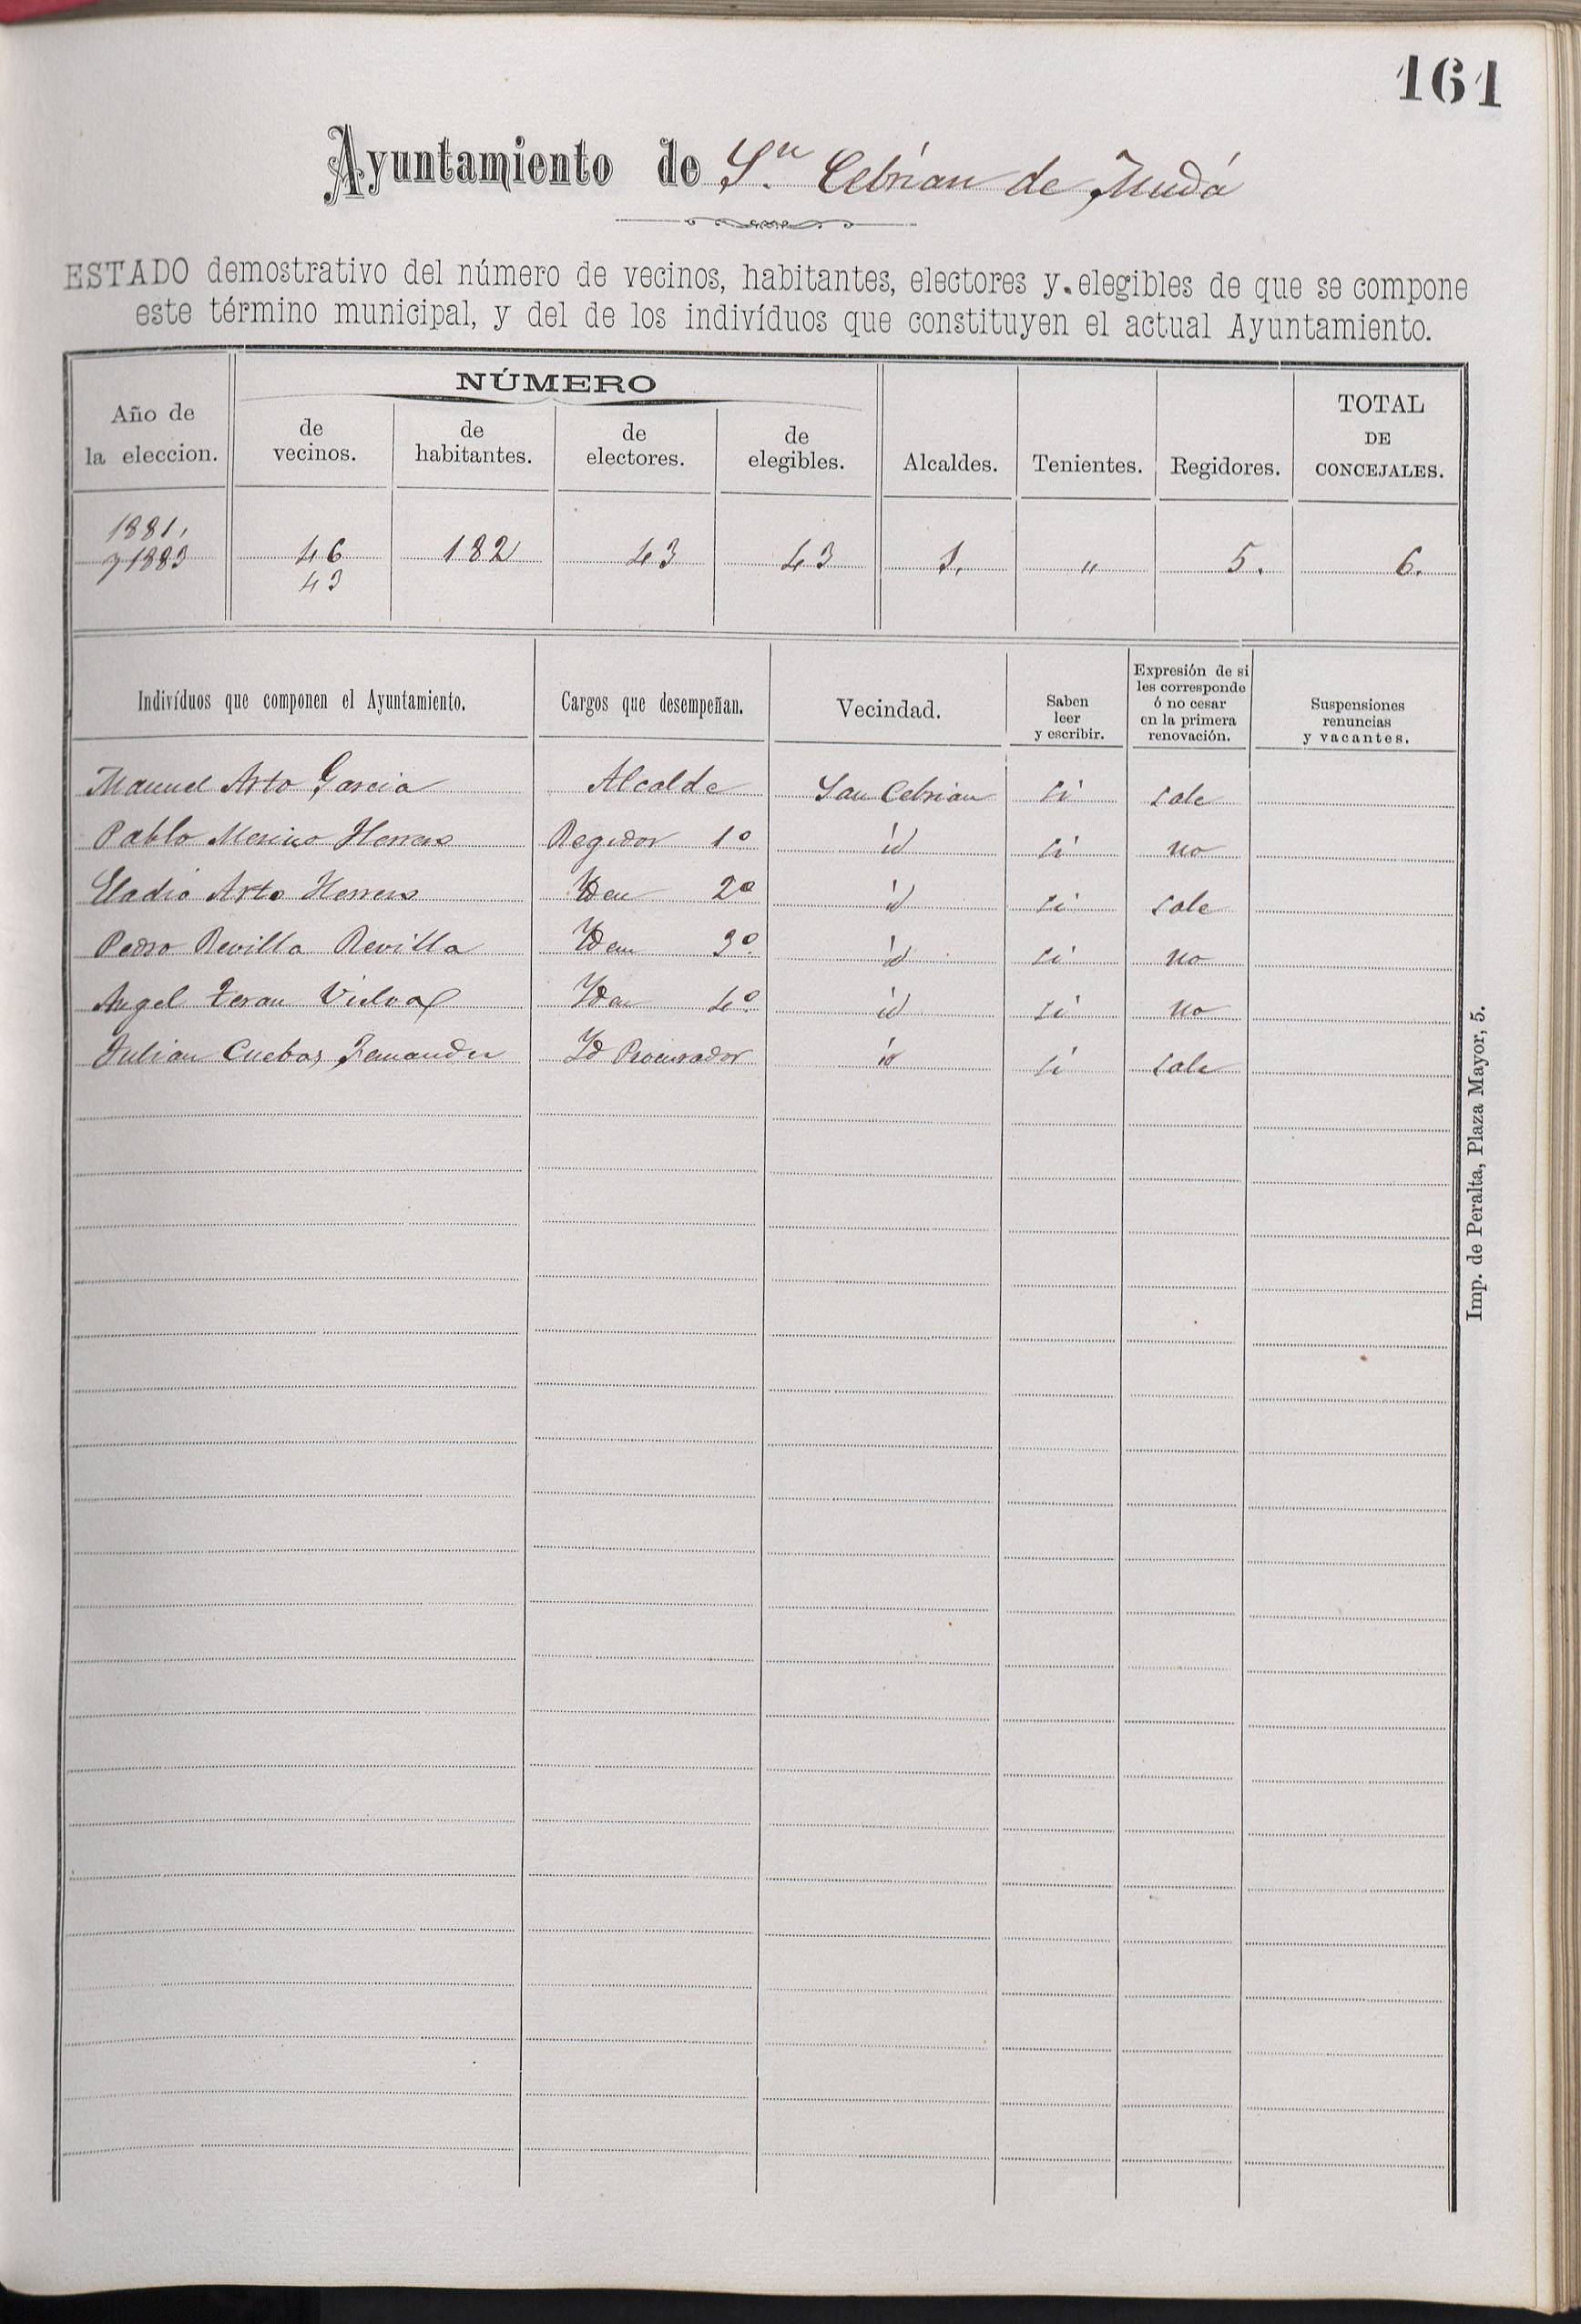 161
Ayuntamiento de Sn. Cebrian de Mudá
ESTADO demostrativo del número de vecinos, habitantes, electores y elegibles de que se compone
este término municipal, y del de los indivíduos que constituyen el actual Ayuntamiento.
Año de la eleccion. NÚMERO de vecinos. de habitantes. de electores. de elegibles. Alcaldes. Tenientes. Regidores. TOTAL DE CONCEJALES.
1881,
y 1883 46 182 43 43 1. " 5. 6.
43
Indivíduos que componen el Ayuntamiento. Cargos que desempeñan. Vecindad. Saben leer y escribir. Expresión de si les corresponde ó no cesar en la primera renovación. Suspensiones renuncias y vacantes.
Manuel Arto Garcia Alcalde San Cebrian si sale
Pablo Merino Herrero Regidor 1º id si no
Eladio Arto Herrero Yden 2º id si sale
Pedro Revilla Revilla Ydem 3º id si no
Angel Teran Vielva Yden 4º id si no
Julian Cuebas Fernander Yd Procurador id si sale
Imp. de Peralta, Plaza Mayor, 5.